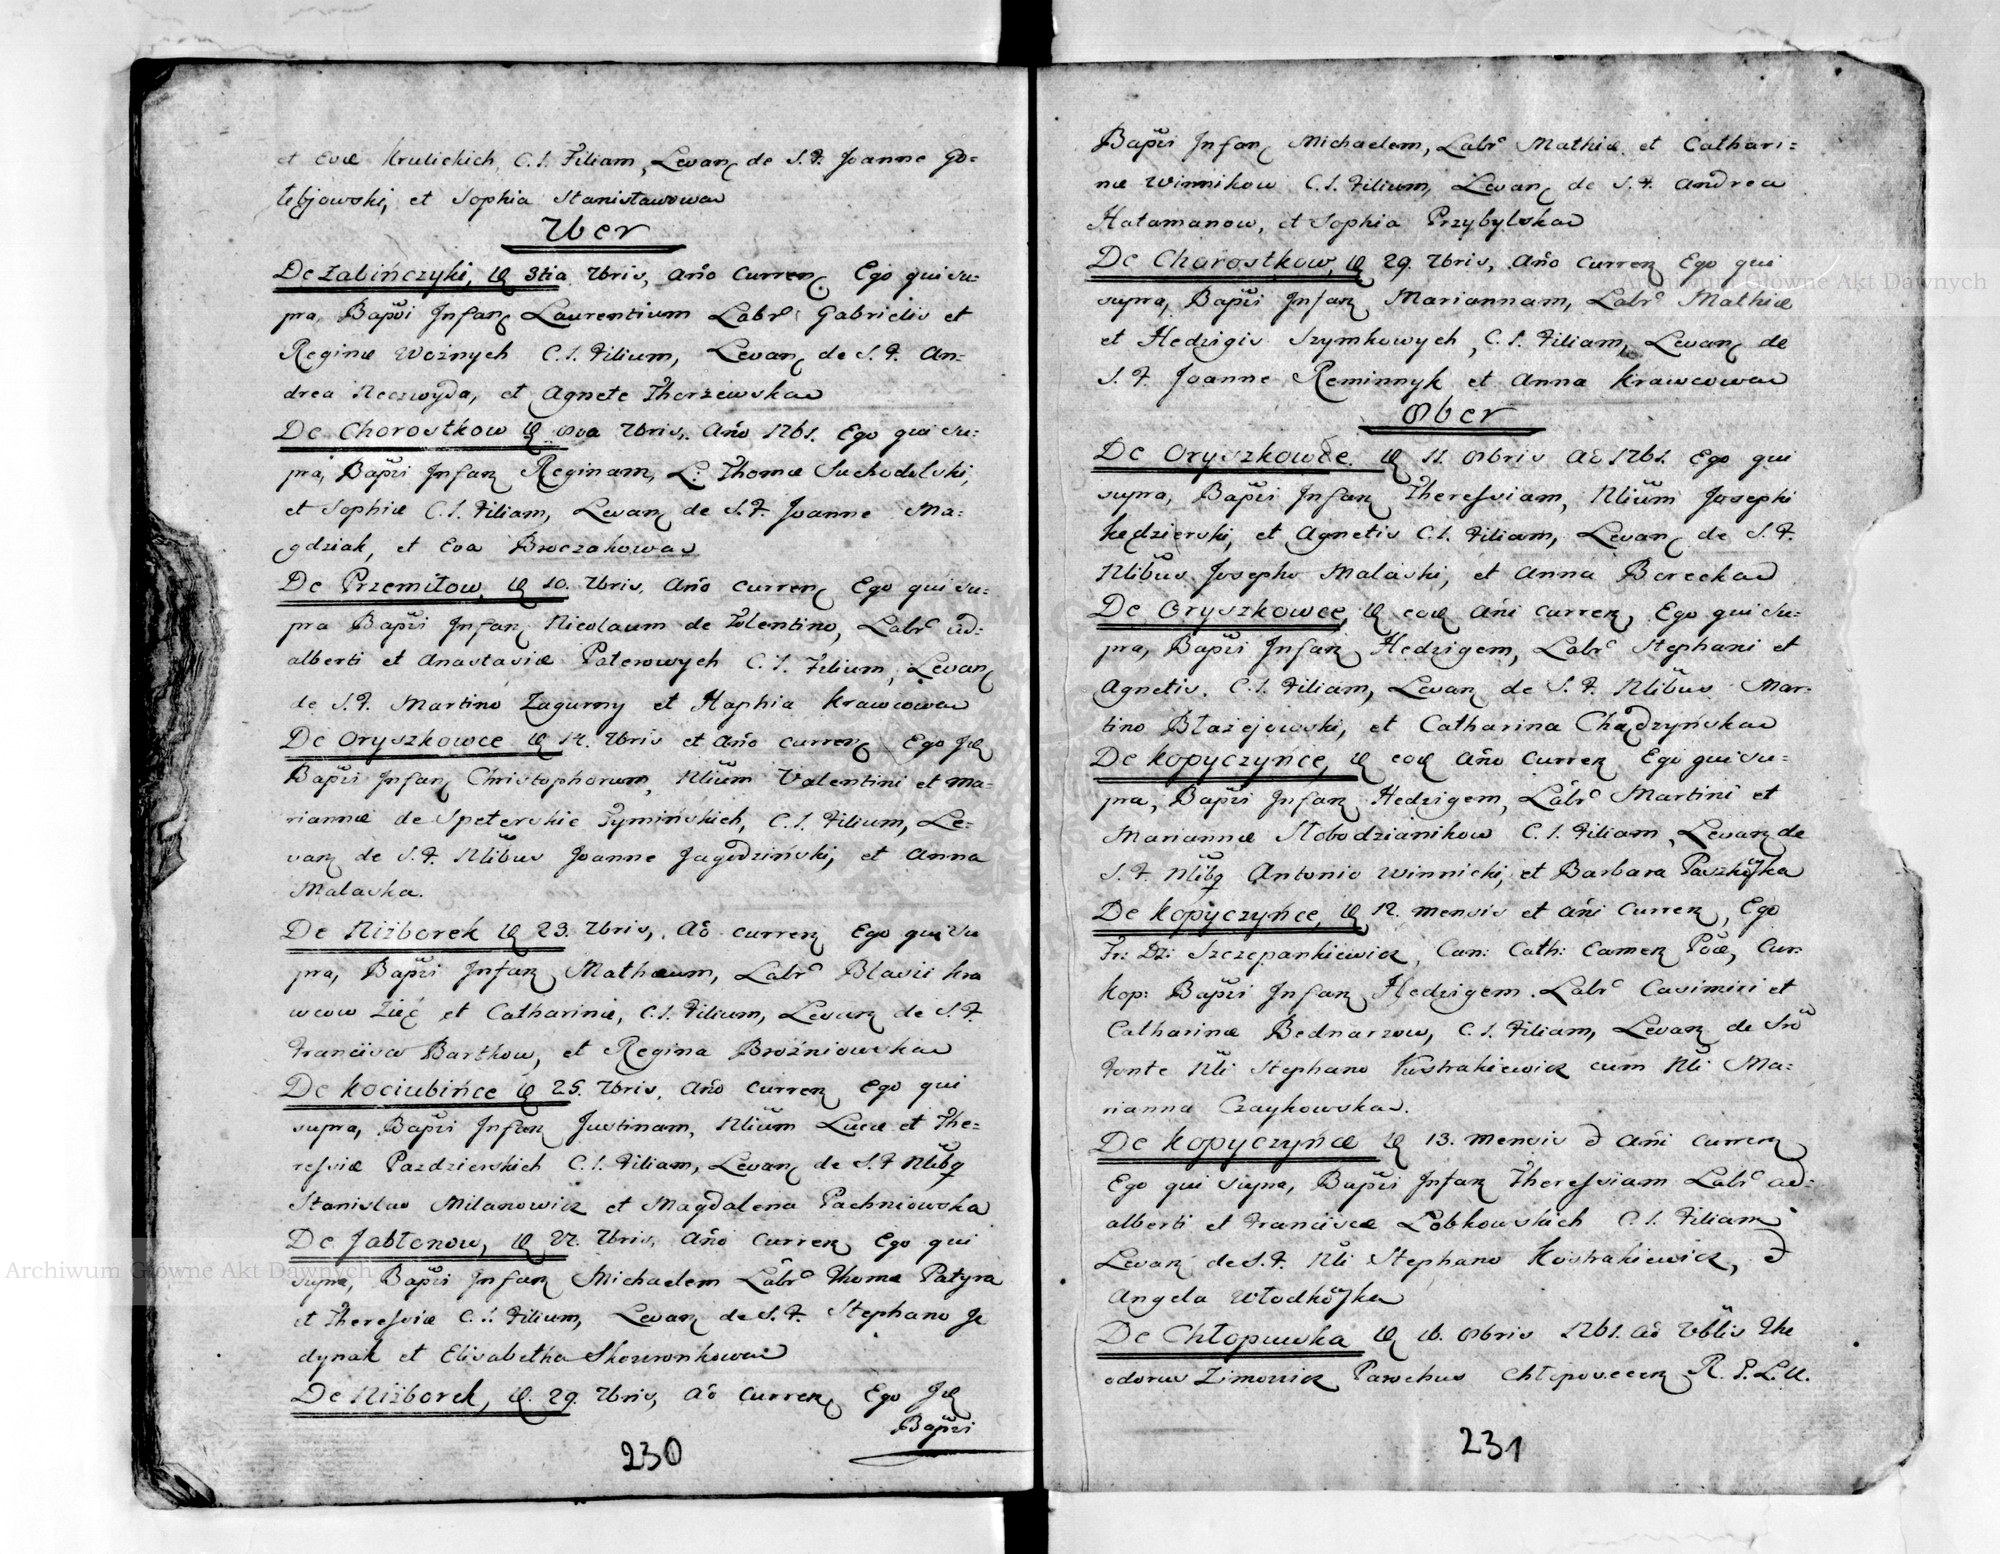 et Evæ Krulickich, C. L. Filiam, Levanz de S. F. Joanne Go=
łębjowski, et Sophia Stanisławowa
7ber
De Żabińczyki, die 3tia 7bris, Año Curren. Ego qui su=
pra, Bapzi Infanz Laurentium Labr Gabrielis et
Reginæ Woźnych C. L. Filium, Levanz de S. F. An=
drea Neczwyda, et Agnete Thorzewska
De Chorostkow die 8va 7bris, Año 1761. Ego qui su=
pra, Bapzi Infanz Reginam, L: Thomæ Suchodolski,
et Sophiæ C. L. Filiam, Levanz de S. F. Joanne Ma=
gdziak, et Eva Broczakowa
De Przemiłow, die 10. 7bris, Año Curren Ego qui su=
pra Bapzi Infanz Nicolaum de Tolentino, Labr Ad=
alberti et Anastasiæ Paterowych C. L. Filium, Levanz
de S. F. Martino Zagurny et Haphia Krawcowa
De Oryszkowce die 14. 7bris et Año Curren Ego
Bapzi Infanz Christophorum, Nlium Valentini et Ma=
riannæ de Speterskie Zymińskich, C. L. Filium, Le=
vanz de S. F. Nlibus Joanne Jagodziński, et Anna
Malaska.
De Niżborek die 23. 7bris, Aō Curren Ego qui su
pra, Bapzi Infanz Mathæum, Labr Blasii Kra
wcow Zięć et Catharinæ, C. L. Filium, Levanz de S. F.
Francisco Bartkow, et Regina Broźniowska
De Kociubińce die 25. 7bris, Año Curren Ego qui
supra, Bapzi Infanz Justinam, Nlium Lucæ et The=
ressiæ Pazdzierskich C. L. Filiam, Levanz de S. F Nlibq
Stanislao Milanowicz et Magdalena Pachniowska
De Jabłonow, die 27. 7bris, Año Curren Ego qui
supra, Bapzi Infanz Michaelem Labr Thomæ Patyra
et Theressiæ C. L. Filium, Levanz de S. F. Stephano Je
dynak et Elisabetha Skowronkowa
De Niżborek, die. 29. 7bris, Aō Curren Ego
Bapzi
230
Bapzi Infanz Michaelem, Labr Mathiæ et Cathari=
næ Winnikow C. L. Filium, Levanz de S. F. Andrea
Hatamanow, et Sophia Przybylska
De Chorostkow, die 29. 7bris, Año Curren Ego qui
supra, Bapzi Infanz Mariannam, Labr Mathiæ
et Hedzigis Szymkowych, C. L. Filiam, Levanz de
S. F. Joanne Reminnyk et Anna Krawcowa
8ber
De Oryszkowce. die 11. 8bris Aō 1761. Ego qui
supra, Bapzi Infanz Theressiam, Nlium Josephi
Kędzierski, et Agnetis C. L. Filiam, Levanz de S. F.
Nlibus Josepho Malaski, et Anna Borecka
De Oryszkowce, die eod Añi Curren, Ego qui su=
pra, Bapzi Infanz Hedzigem, Labr Stephani et
Agnetis. C. L. Filiam, Levanz de S. F. Nlibus Mar=
tino Błażejowski, et Catharina Chądzyńska
De Kopyczyńce, die eod Año Curren Ego qui su=
pra, Bapzi Infanz Hedzigem, Labr Martini et
Mariannæ Słobodzianikow C. L. Filiam, Levanz de
S. F. Nlibq Antonio Winnicki, et Barbara
De Kopyczyńce, die 12. mensis et Añi Curren, Ego
Fr: Dz: Szczepankiewicz, Can: Cath: Camen Cur:
Kop: Bapzi Infanz Hedzigem. Labr Casimiri et
Catharinæ Bednarzow, C. L. Filiam, Levanz de Sro
Fonte Nli Stephano Kostrakiewicz cum Nli Ma=
rianna Czaykowska.
De Kopyczyńce die 13. mensis Añi Curren
Ego qui supra, Bapzi Infanz Theressiam Labr Ad=
alberti et Franciscæ Lobkowskich C. L. Filiam
Levanz de S. F. Nli Stephano Kostrakiewicz,
Angela
De Chłopuwka die 16. 8bris 1761. Aō Vblis The
odorus Zimowicz Parochus Chłopovecen R. P. L. U.
231
Archiwum Główne Akt Dawnych
Archiwum Główne Akt Dawnych